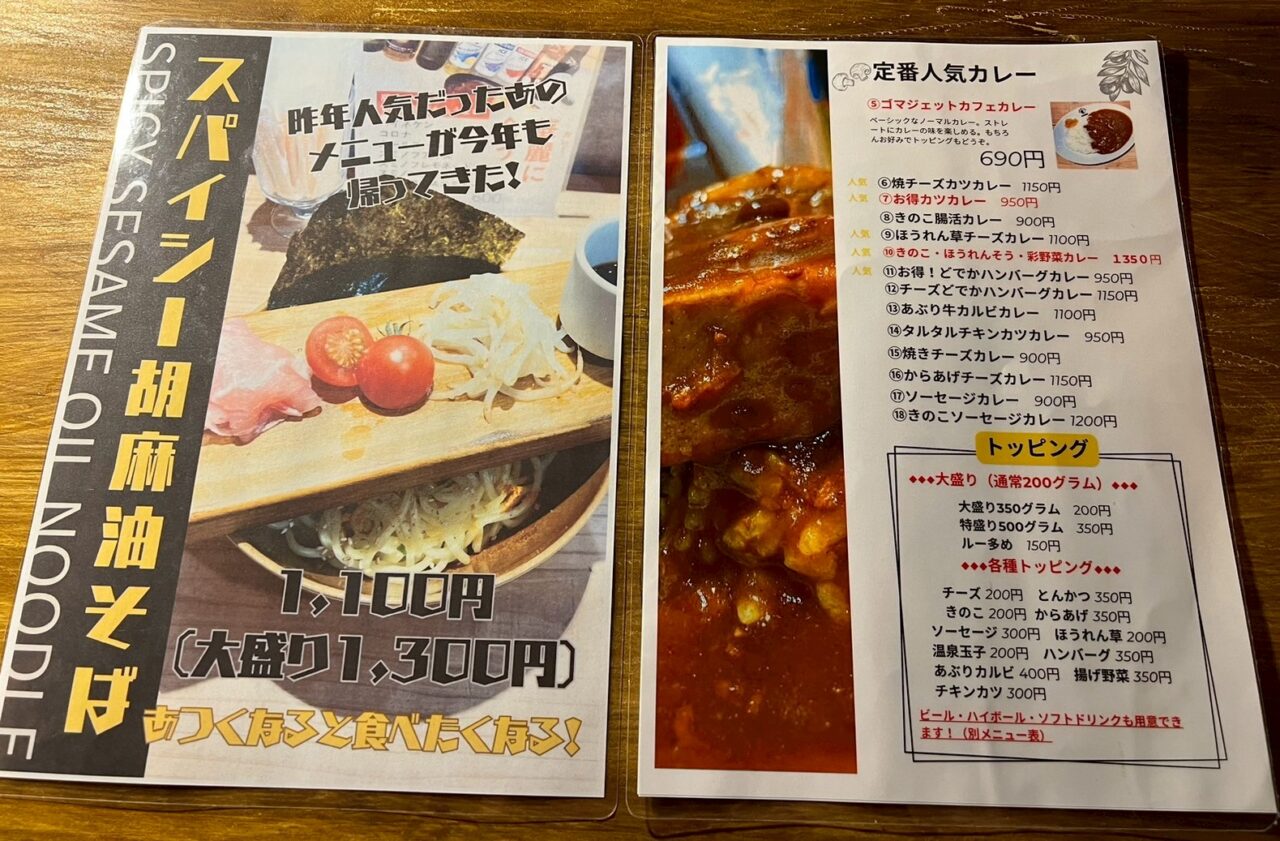 スパイシー胡麻油そば
SPICY SESAME OIL NOODLE
昨年人気だったあの
メニューが今年も
帰ってきた!
1,100円
(大盛り1,300円)
あつくなると食べたくなる!
定番人気カレー
⑤ゴマジェットカフェカレー
ベーシックなノーマルカレー。ストレ
ートにカレーの味を楽しめる。もちろ
んお好みでトッピングもどうぞ。
690円
人気 ⑥焼チーズカツカレー 1150円
人気 ⑦お得カツカレー 950円
⑧きのこ腸活カレー 900円
人気 ⑨ほうれん草チーズカレー 1100円
人気 ⑩きのこ・ほうれんそう・彩野菜カレー 1350円
人気 ⑪お得!どでかハンバーグカレー 950円
⑫チーズどでかハンバーグカレー 1150円
⑬あぶり牛カルビカレー 1100円
⑭タルタルチキンカツカレー 950円
⑮焼きチーズカレー 900円
⑯からあげチーズカレー 1150円
⑰ソーセージカレー 900円
⑱きのこソーセージカレー 1200円
トッピング
◆◆◆大盛り(通常200グラム)◆◆◆
大盛り350グラム 200円
特盛り500グラム 350円
ルー多め 150円
◆◆◆各種トッピング◆◆◆
チーズ 200円 とんかつ 350円
きのこ 200円 からあげ 350円
ソーセージ 300円 ほうれん草 200円
温泉玉子 200円 ハンバーグ 350円
あぶりカルビ 400円 揚げ野菜 350円
チキンカツ 300円
ビール・ハイボール・ソフトドリンクも用意でき
ます!(別メニュー表)